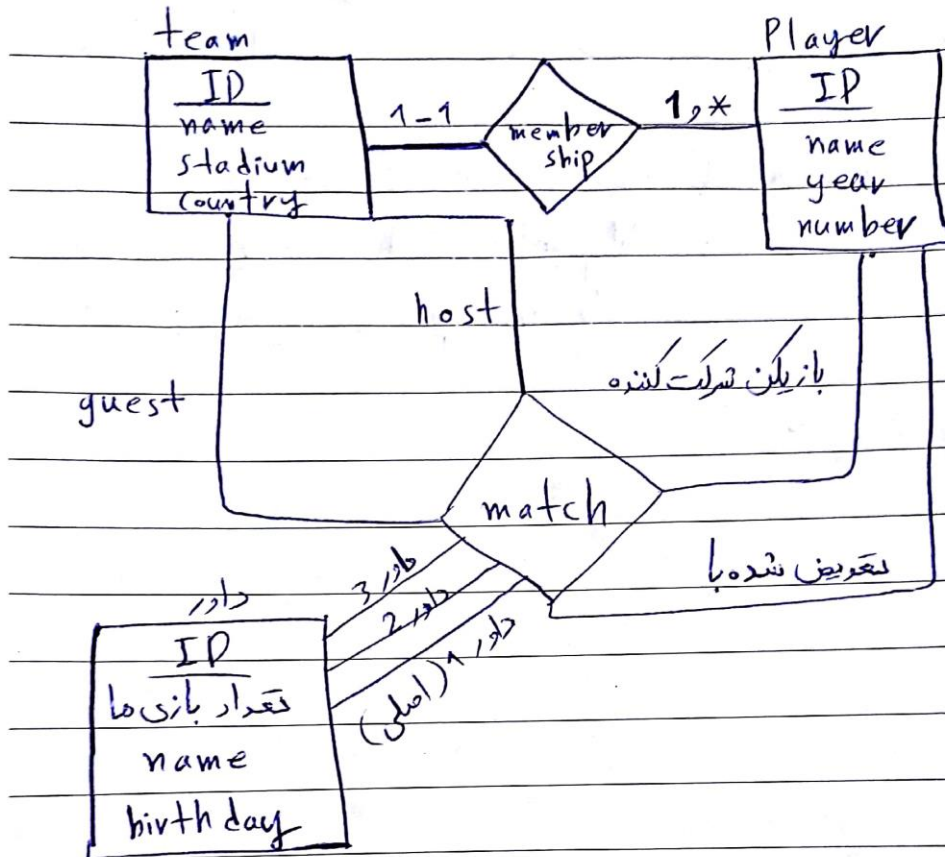 team
ID
name
stadium
country
1-1
member
ship
1,*
Player
ID
name
year
number
host
guest
بازیکن شرکت کننده
match
تعویض شده با
داور 3
داور 2
داور 1 (اصلی)
داور
ID
تعداد بازی ها
name
birthday